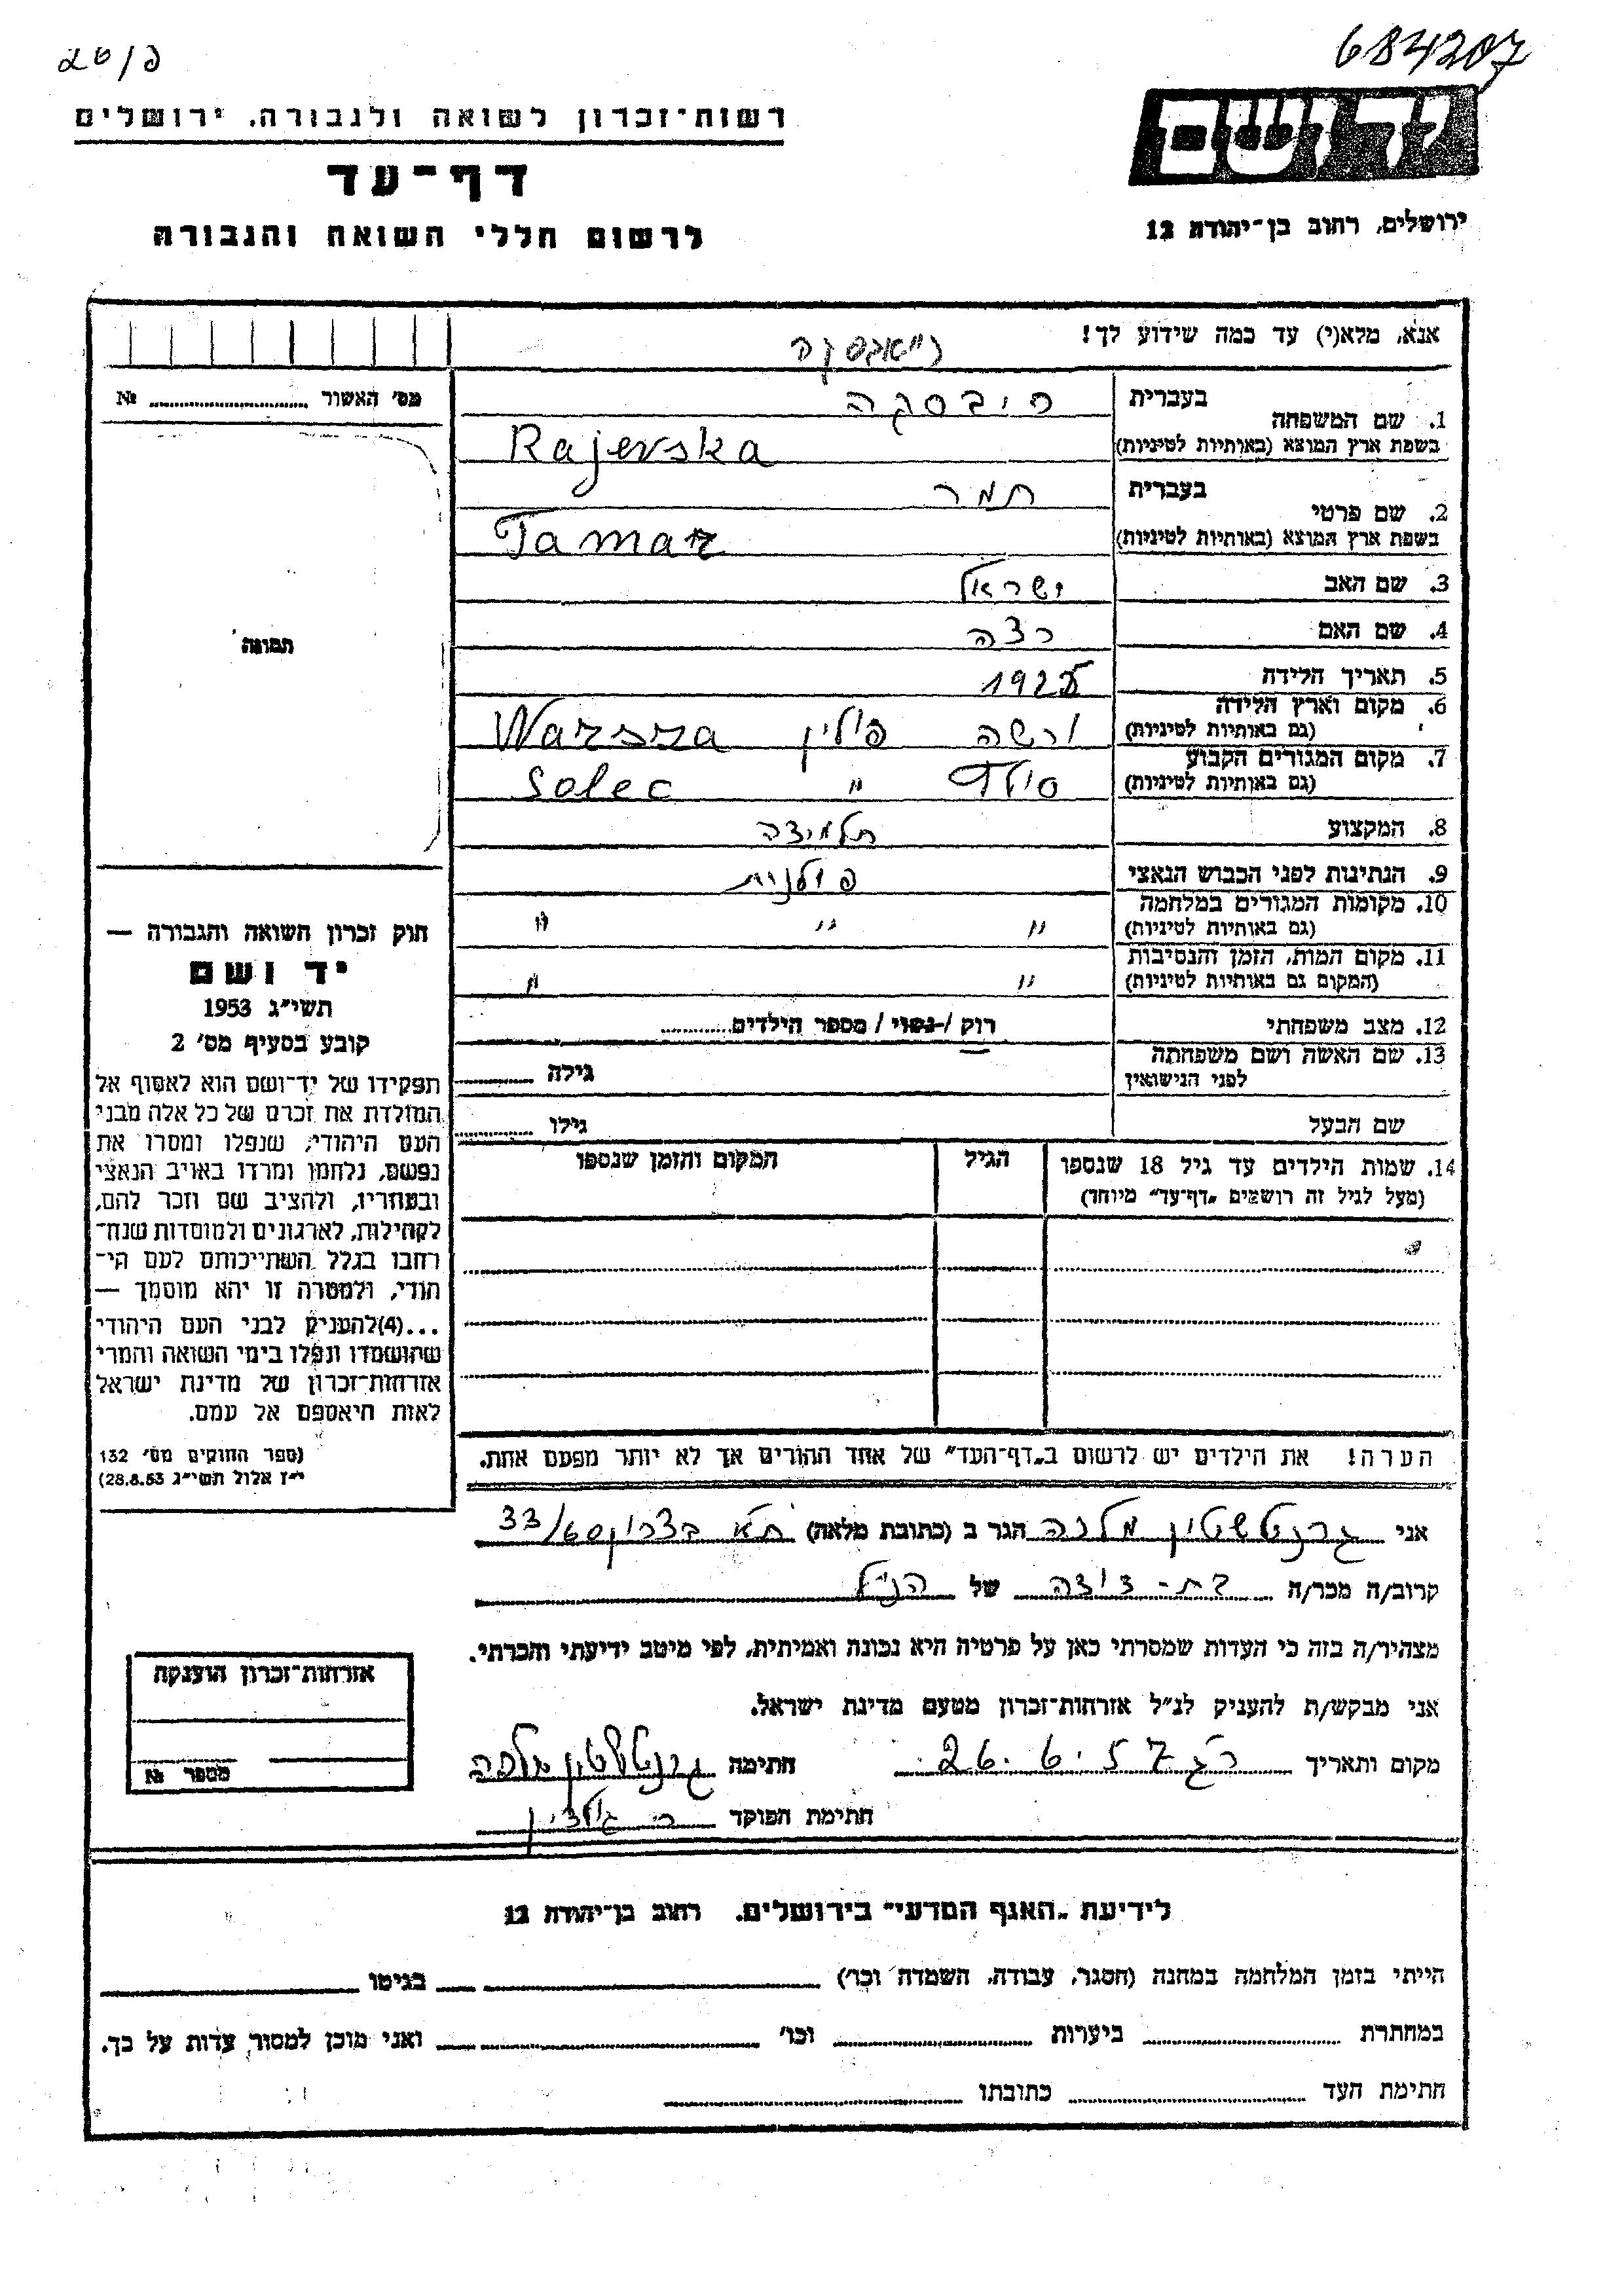 684207
רשות־זכרון לשואה ולגבורה, ירושלים
דף־עד
לרשום חללי השואה והגבורה
יד ושם
ירושלים, רחוב בן־יהודה 12
אנא, מלא(י) עד כמה שידוע לך!
מס׳ האשור № 
1. שם המשפחה
בעברית
בשפת ארץ המוצא (באותיות לטיניות) Rajevska
2. שם פרטי
בעברית תמר
בשפת ארץ המוצא (באותיות לטיניות) Tamar
3. שם האב ישראל
4. שם האם
5. תאריך הלידה
6. מקום וארץ הלידה (גם באותיות לטיניות) ורשה פולין Warsza
7. מקום המגורים הקבוע (גם באותיות לטיניות) סולץ " Solec
8. המקצוע תלמידה
9. הנתינות לפני הכבוש הנאצי פולנית
10. מקומות המגורים במלחמה (גם באותיות לטיניות) " " "
11. מקום המות, הזמן והנסיבות (המקום גם באותיות לטיניות) " "
12. מצב משפחתי רוק / נשוי / מספר הילדים
13. שם האשה ושם משפחתה לפני הנישואין גילה
שם הבעל גילו
14. שמות הילדים עד גיל 18 שנספו
(מעל לגיל זה רושמים „דף־עד" מיוחד)
הגיל
המקום והזמן שנספו
הערה! את הילדים יש לרשום ב„דף־העד" של אחד ההורים אך לא יותר מפעם אחת.
תמונה
חוק זכרון השואה והגבורה —
יד ושם
תשי״ג 1953
קובע בסעיף מס׳ 2
תפקידו של יד־ושם הוא לאסוף אל
המולדת את זכרם של כל אלה מבני
העם היהודי, שנפלו ומסרו את
נפשם, נלחמו ומרדו באויב הנאצי
ובעוזריו, ולהציב שם וזכר להם,
לקהילות, לארגונים ולמוסדות שנח־
רחבו בגלל השתייכותם לעם הי־
הודי, ולמטרה זו יהא מוסמך —
...(4)להעניק לבני העם היהודי
שהושמדו ונפלו בימי השואה והמרי
אזרחות־זכרון של מדינת ישראל
לאות היאספם אל עמם.
(ספר החוקים מס׳ 132
י״ז אלול תשי״ג 28.8.53)
אני גרנטשטיין מלכה הגר ב (כתובת מלאה) ת״א 33/
קרוב/ה מכר/ה בת־דודה של הנ״ל
מצהיר/ה בזה כי העדות שמסרתי כאן על פרטיה היא נכונה ואמיתית, לפי מיטב ידיעתי והכרתי.
אני מבקש/ת להעניק לנ״ל אזרחות־זכרון מטעם מדינת ישראל.
מקום ותאריך ר״ג 26.6.57 חתימה גרנטשטיין מלכה
חתימת הפוקד
אזרחות־זכרון הוענקה
מספר №
לידיעת „האגף המדעי" בירושלים, רחוב בן־יהודה 12
הייתי בזמן המלחמה במחנה (הסגר, עבודה, השמדה וכו׳) בגיטו
במחתרת ביערות וכו׳ ואני מוכן למסור עדות על כך.
חתימת העד כתובתו